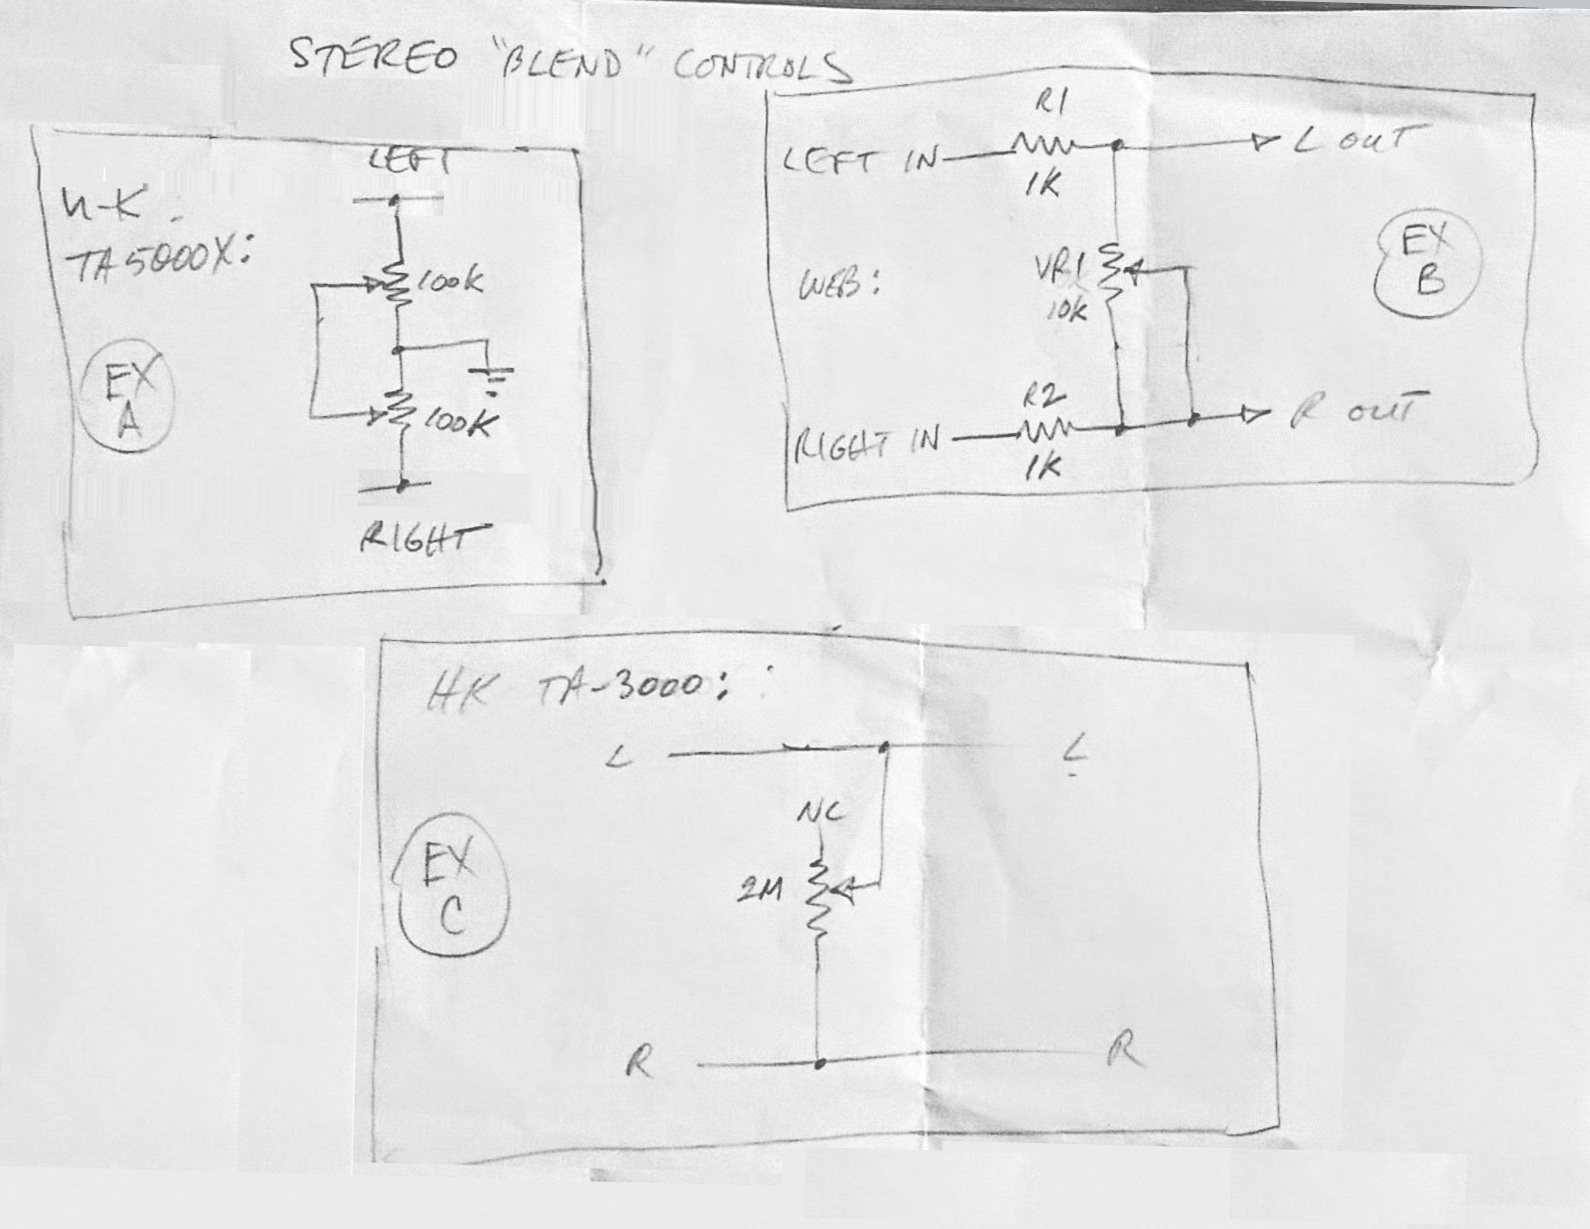 STEREO "BLEND" CONTROLS
LEFT
H-K
TA5000X:
100K
EX
A
100K
RIGHT
R1
LEFT IN
1K
L OUT
EX
B
WEB:
VR1
10K
R2
RIGHT IN
1K
R OUT
HK TA-3000:
L
L
NC
EX
C
2M
R
R